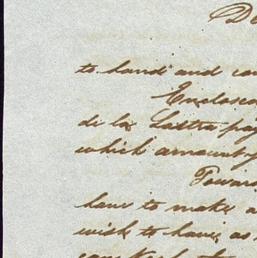 De
to hand and con
Enclosed
de la Lastra pay
which amount p
Toward
have to make a
wish to have, as